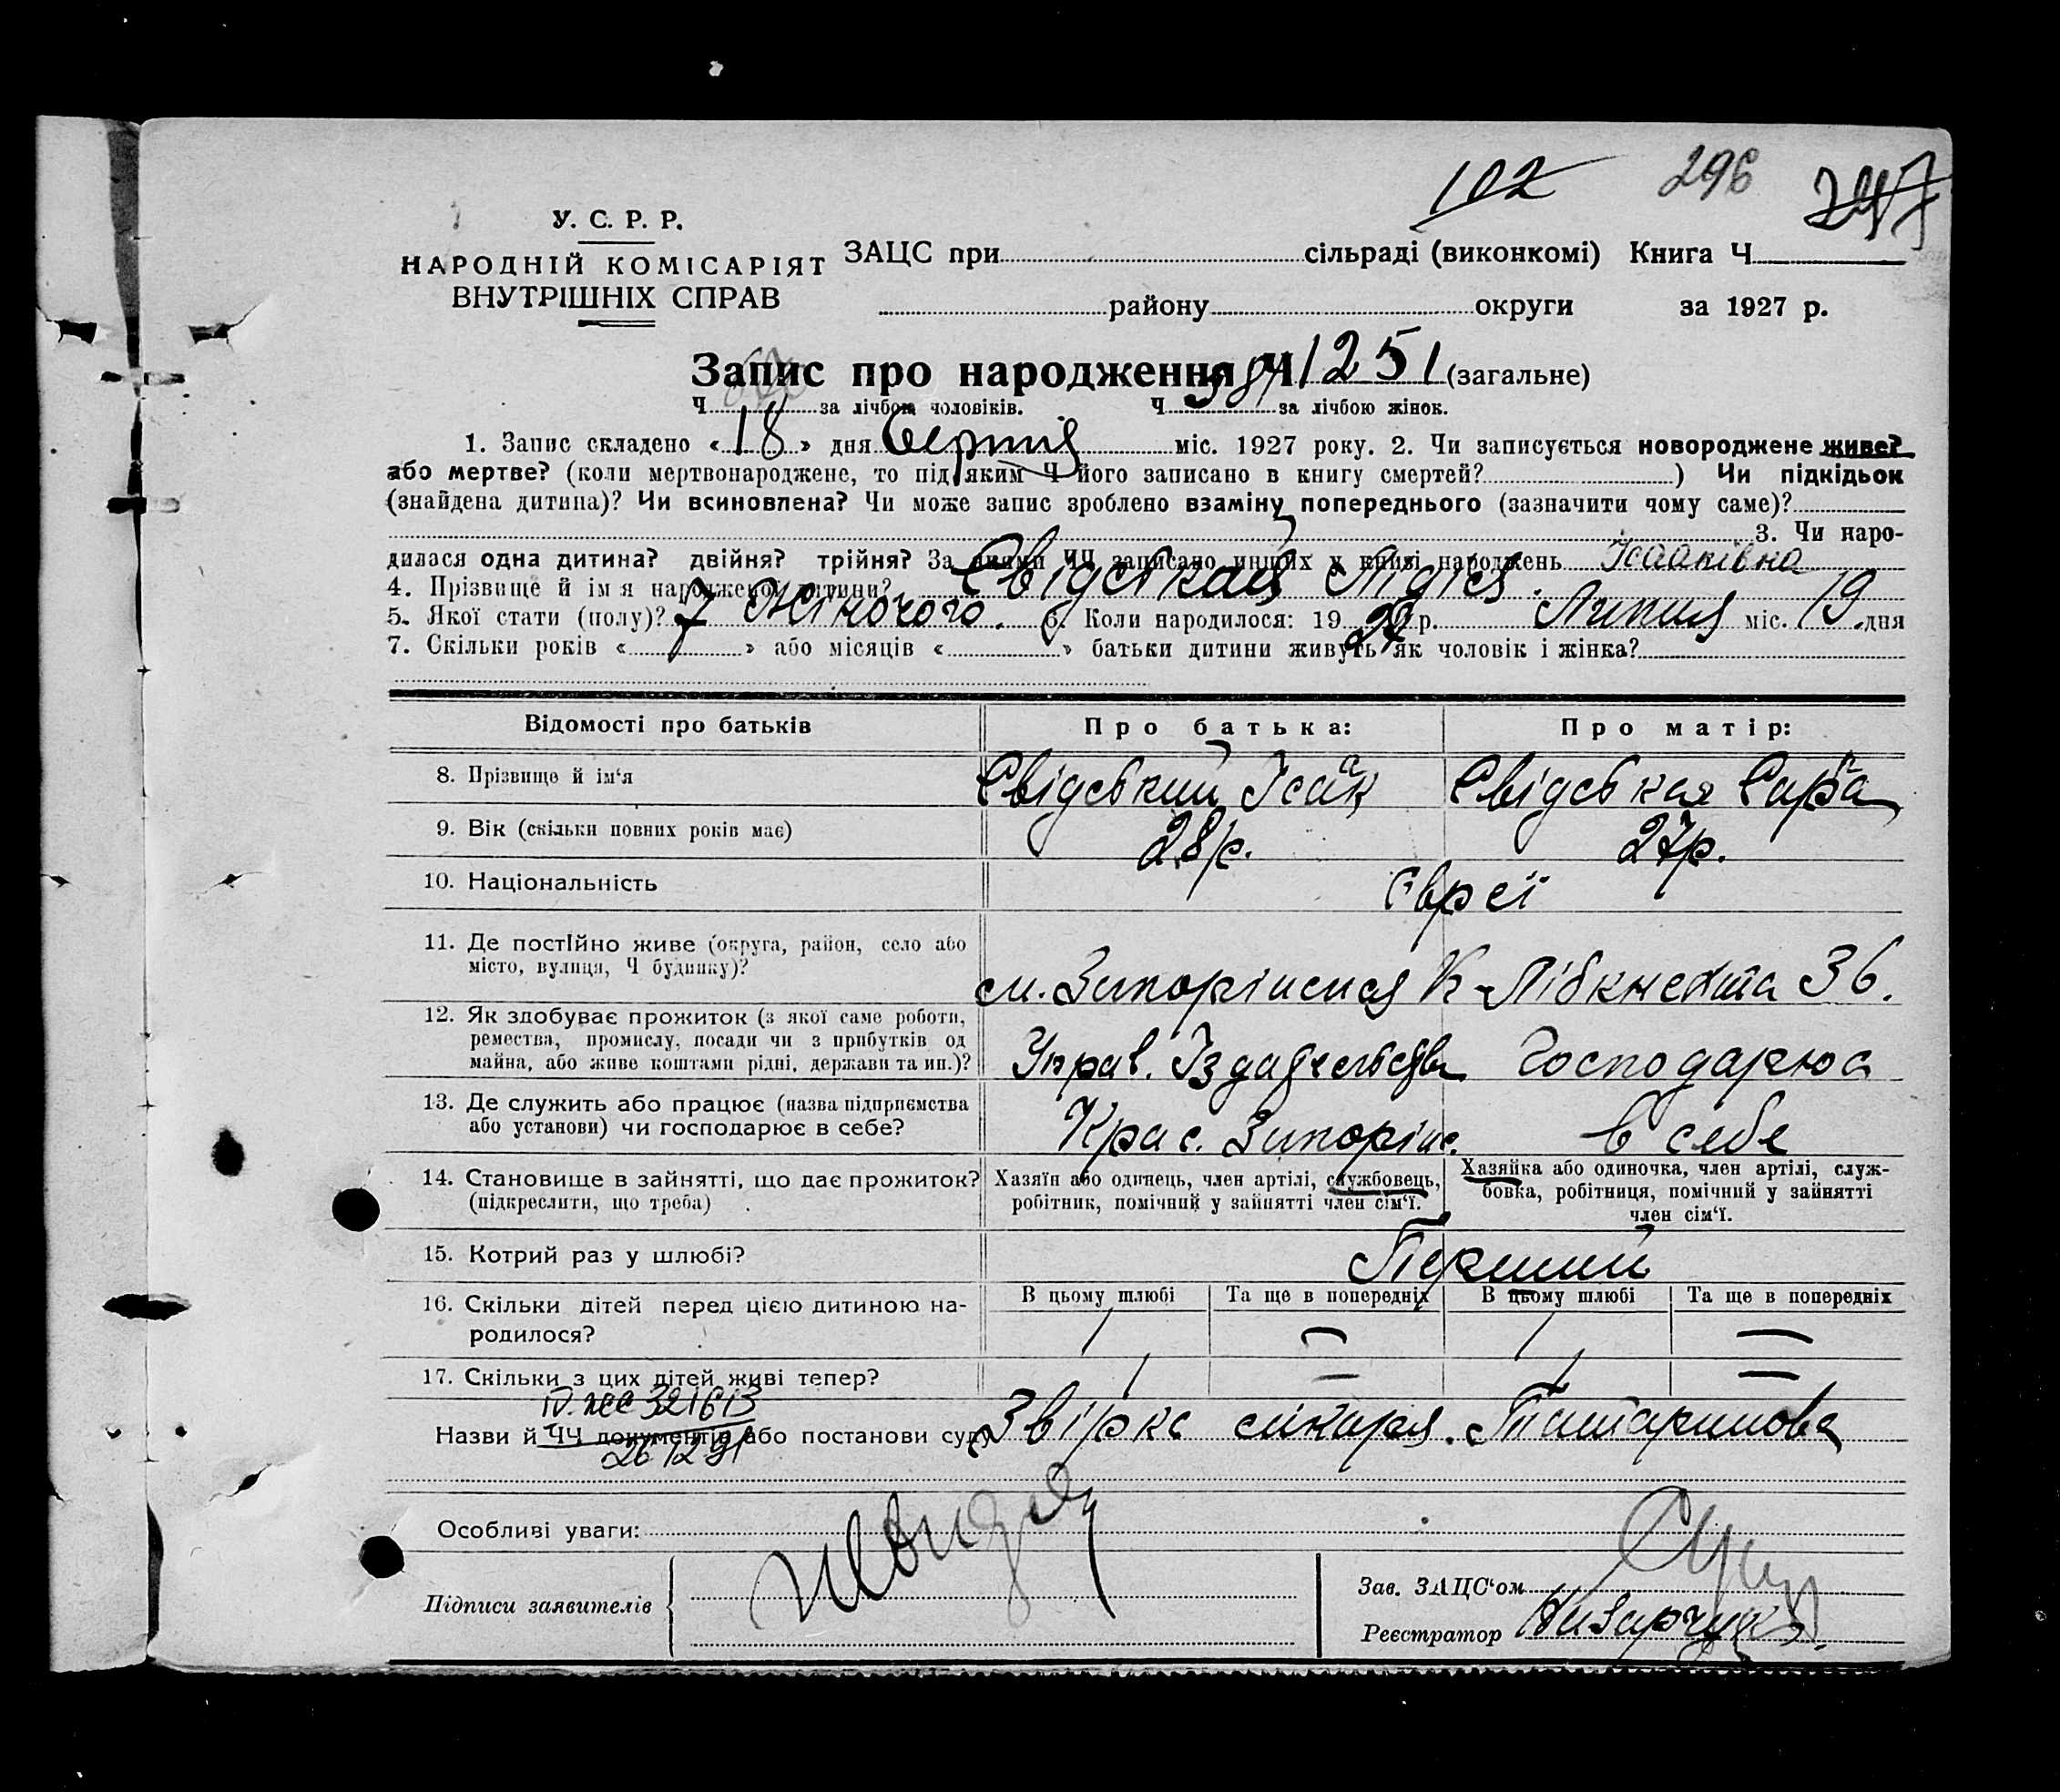 102 296 247
У. С. Р. Р.
НАРОДНІЙ КОМІСАРІЯТ
ВНУТРІШНІХ СПРАВ
ЗАЦС при сільраді (виконкомі) Книга Ч
району округи за 1927 р.
Запис про народження Ч 1251 (загальне)
Ч за лічбою чоловіків. Ч за лічбою жінок.
1. Запис складено « 18 » дня Серпня міс. 1927 року. 2. Чи записується новороджене живе?
або мертве? (коли мертвонароджене, то під яким Ч його записано в книгу смертей? ) Чи підкідьок
(знайдена дитина)? Чи всиновлена? Чи може запис зроблено взаміну попереднього (зазначити чому саме)?
3. Чи наро-
дилася одна дитина? двійня? трійня? За якими ЧЧ записано инших у книзі народжень Ісааківна
4. Прізвище й ім'я народженої дитини? Свідськая Лідія.
5. Якої стати (полу)? Жіночого. 6. Коли народилося: 19 27 р. Липня міс. 19 дня
7. Скільки років « » або місяців « » батьки дитини живуть як чоловік і жінка?
Відомості про батьків Про батька: Про матір:
8. Прізвище й ім‘я Свідський Ісаак Свідськая Сарра
9. Вік (скільки повних років має) 28 р. 27 р.
10. Національність Євреї
11. Де постійно живе (округа, район, село або
місто, вулиця, Ч будинку)? м. Запоріжжя К-Лібкнехта 36.
12. Як здобуває прожиток (з якої саме роботи,
ремества, промислу, посади чи з прибутків од
майна, або живе коштами рідні, держави та ин.)? Управ. Іздательства Господарює
13. Де служить або працює (назва підприємства
або установи) чи господарює в себе? Крас. Запоріж. в себе
14. Становище в зайнятті, що дає прожиток?
(підкреслити, що треба)
Хазяїн або одинець, член артілі, службовець,
робітник, помічний у зайнятті член сім‘ї.
Хазяйка або одиночка, член артілі, служ-
бовка, робітниця, помічний у зайнятті
член сім‘ї.
15. Котрий раз у шлюбі? Перший
В цьому шлюбі Та ще в попередніх В цьому шлюбі Та ще в попередніх
16. Скільки дітей перед цією дитиною на-
родилося? 1 — 1 —
17. Скільки з цих дітей живі тепер? 1 — 1 —
321613
Назви й ЧЧ документів або постанови суду Звірка лікаря. Татаринова
Особливі уваги:
Підписи заявителів
Зав. ЗАЦС‘ом
Реєстратор